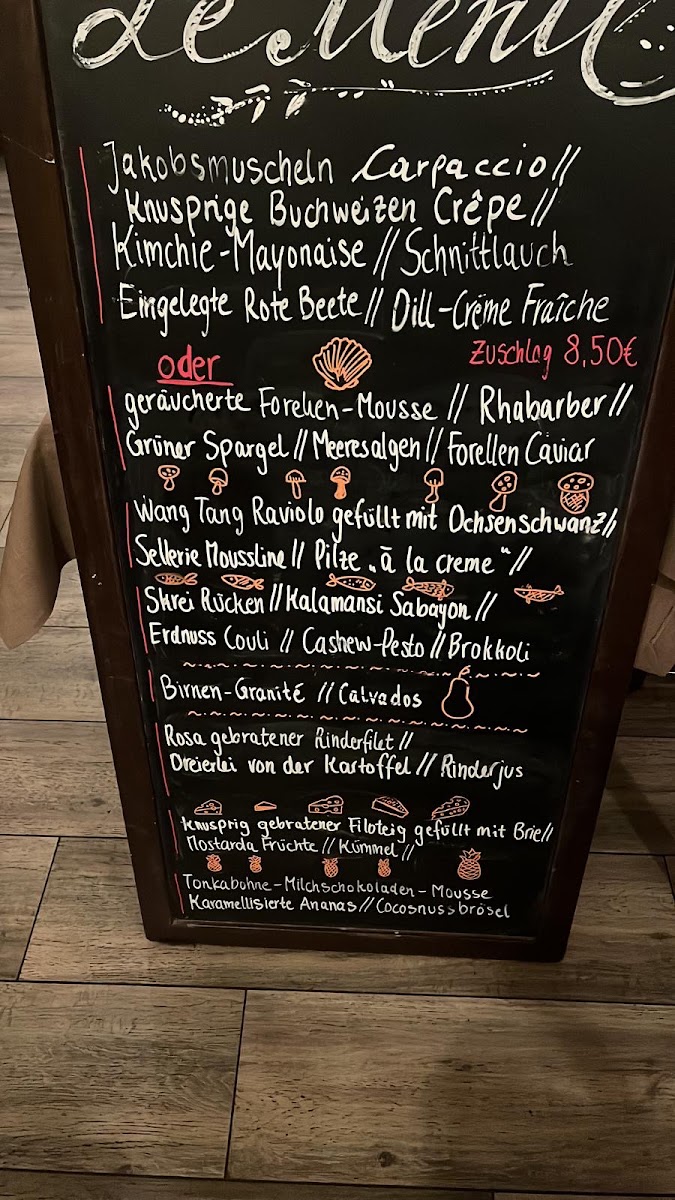 Le Menü
Jakobsmuscheln Carpaccio //
Knusprige Buchweizen Crêpe //
Kimchie-Mayonaise // Schnittlauch
Eingelegte Rote Beete // Dill-Crème Fraîche
Zuschlag 8,50€
oder
geräucherte Forellen-Mousse // Rhabarber //
Grüner Spargel // Meeresalgen // Forellen Caviar
Wang Tang Raviolo gefüllt mit Ochsenschwanz //
Sellerie Moussline // Pilze „à la creme“ //
Skrei Rücken // Kalamansi Sabayon //
Erdnuss Couli // Cashew-Pesto // Brokkoli
Birnen-Granité // Calvados
Rosa gebratener Rinderfilet //
Dreierlei von der Kartoffel // Rinderjus
Knusprig gebratener Filoteig gefüllt mit Brie //
Mostarda Früchte // Kümmel //
Tonkabohne-Milchschokoladen-Mousse
Karamellisierte Ananas // Cocosnussbrösel